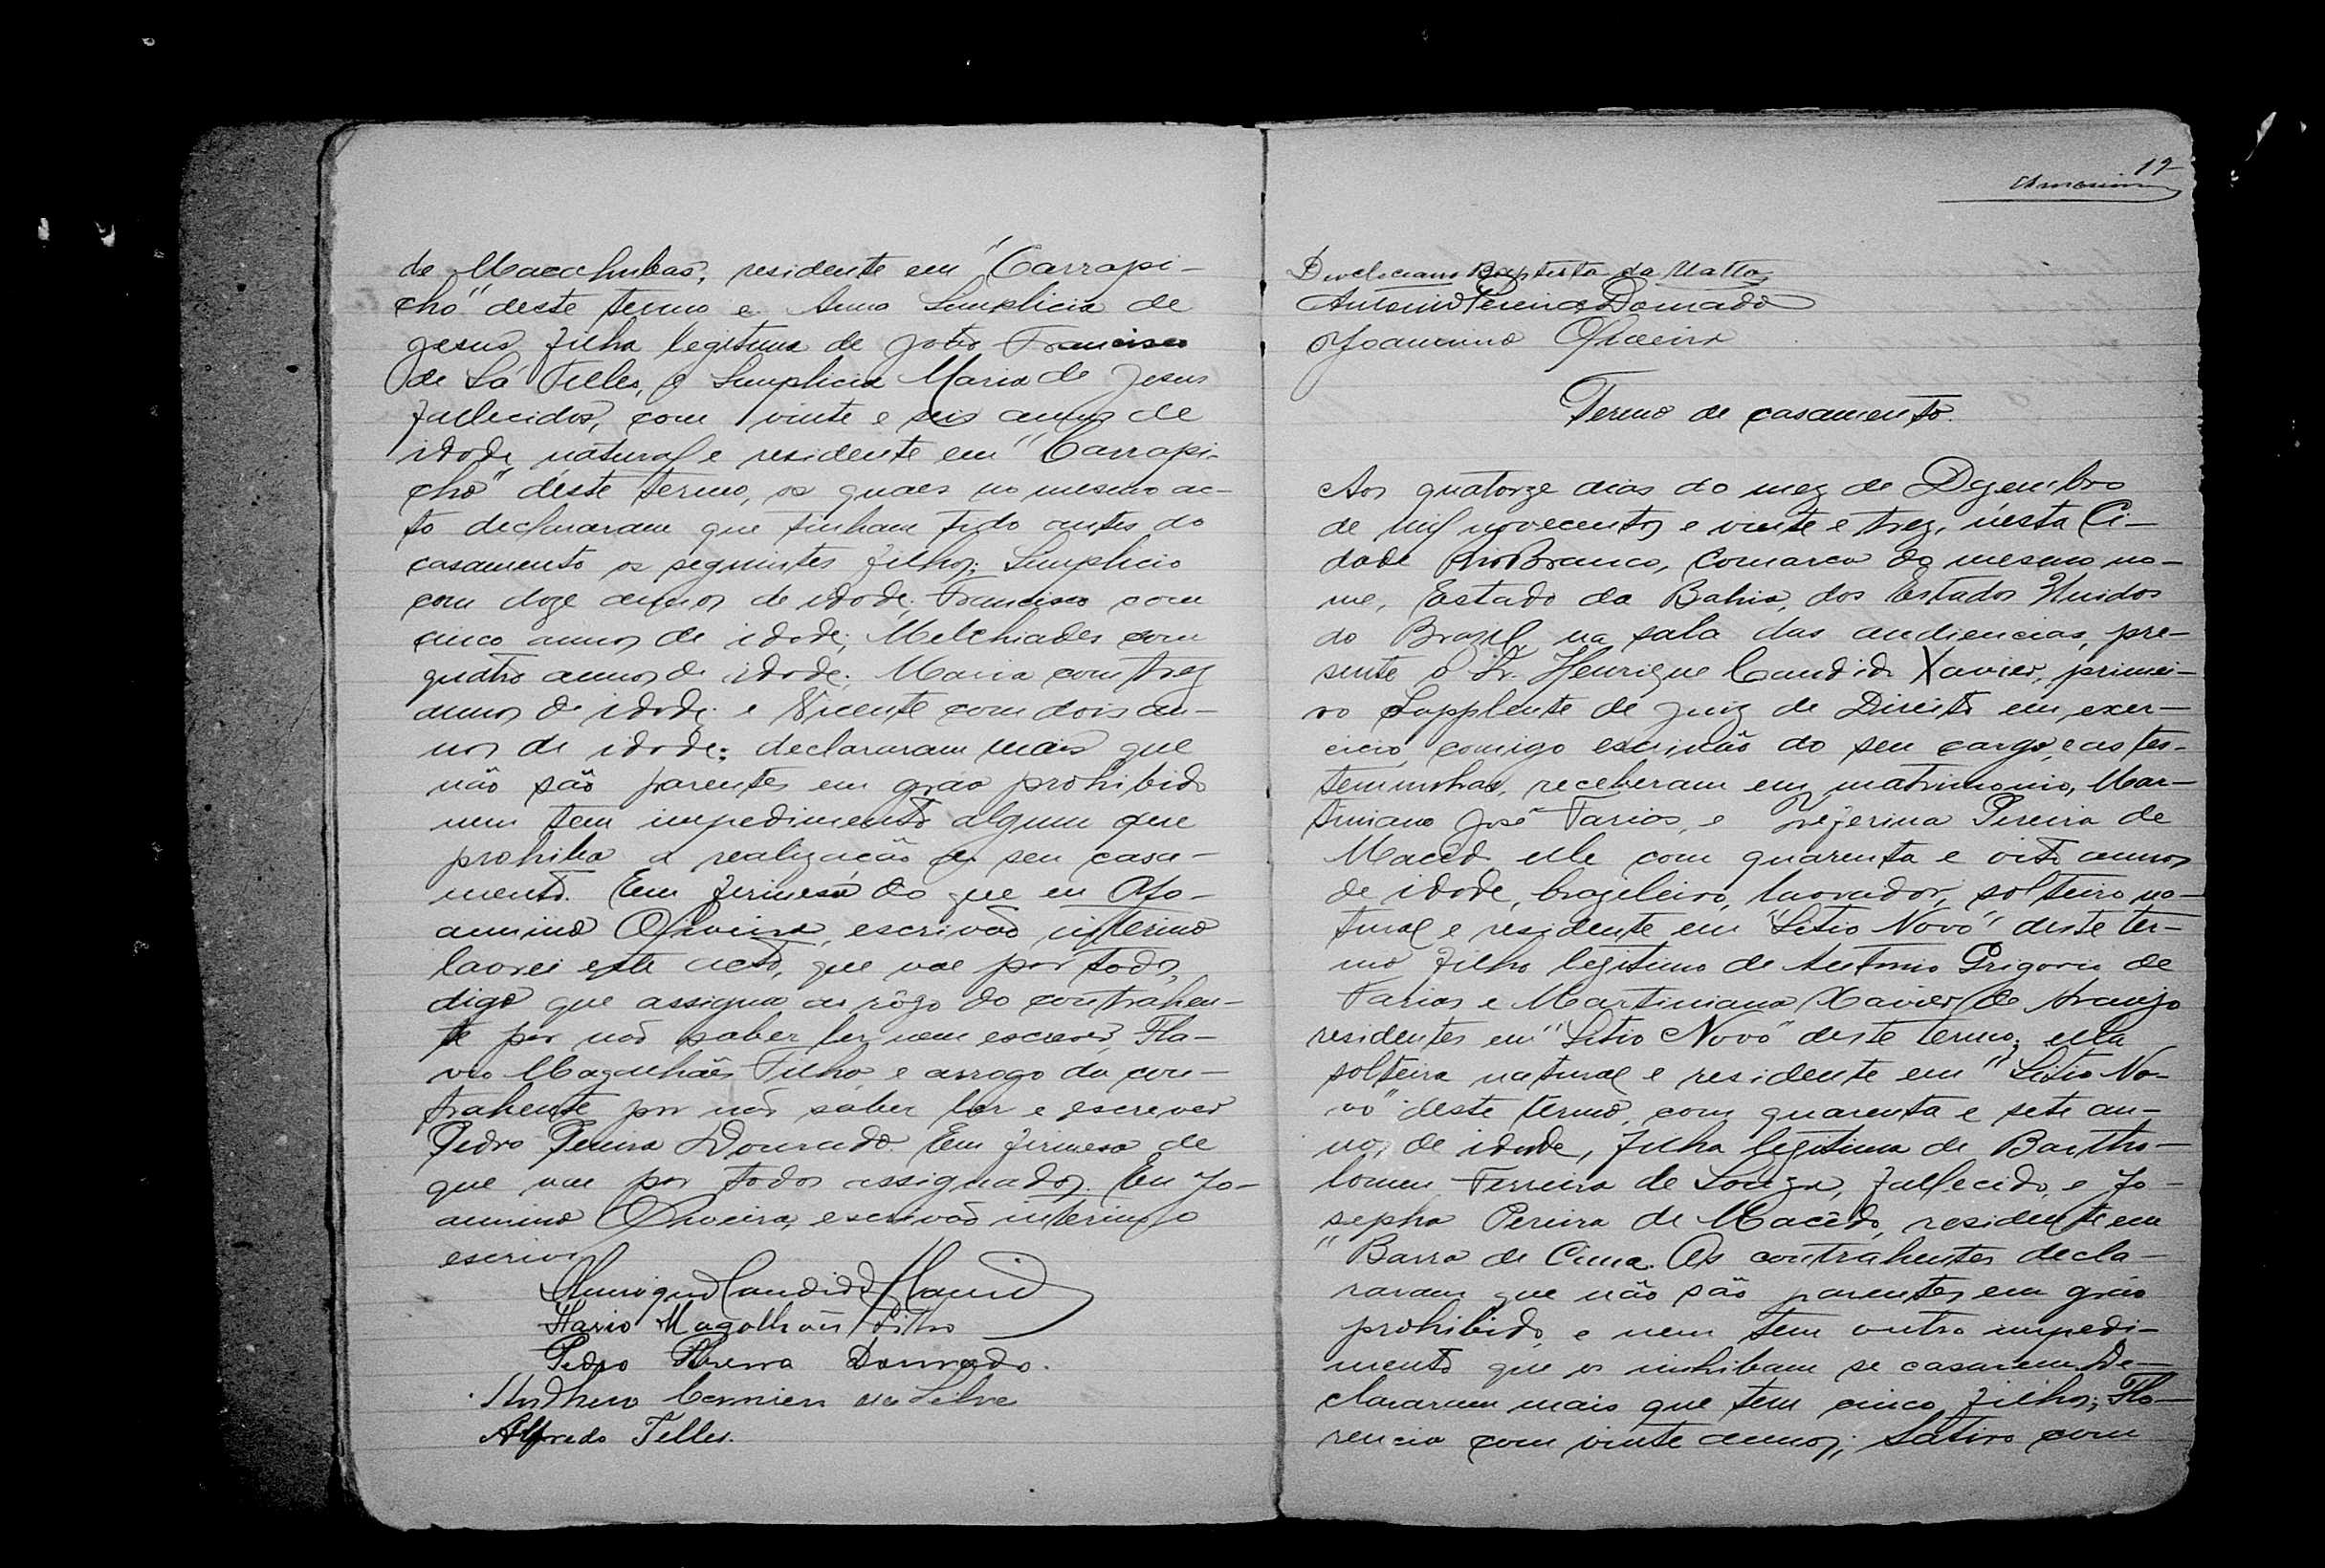 de Macahubas, residente em "Carrapi-
cho" deste termo e Anna Simplicia de
Jesus filha legitima de João Francisco
de Sá Telles, e Simplicia Maria de Jesus
fallecidos, com vinte e seis annos de
idade natural e residente em "Carrapi-
cho" déste termo, os quaes no mesmo ac-
to declararam que tinham tido antes do
casamento os seguintes filhos: Simplicio
com doze annos de idade; Francisco com
cinco annos de idade; Melchiades com
quatro annos de idade; Maria com trez
annos de idade; e Vicente com dois an-
nos de idade; declararam mais que
não são parentes em gráo prohibido
nem tem impedimento algum que
prohiba a realização de seu casa-
mento. Em firmesa do que eu Jo-
annino Oliveira, escrivão interino
lavrei este acto, que vae por todos,
digo que assigna ao rôgo do contrahen-
te por não saber ler nem escrever, Fla-
vio Magalhães Filho e arrogo da con-
trahente por não saber ler e escrever
Pedro Pereira Dourado. Em firmesa de
que vae por todos assignados. Eu Jo-
annino Oliveira, escrivão interino o
escrivi
Henrique Candido Xavier
Flavio Magalhães Filho
Pedro Pereira Dourado.
da Silva
Alfredo Telles.
12
Diocleciano Baptista da Matta
Antonio Pereira Dourado
Joannino Oliveira
Termo de casamento.
Aos quatorze dias do mez de Dezembro
de mil novecentos e vinte e trez, nésta Ci-
dade Rio Branco, Comarca do mesmo no-
me, Estado da Bahia, dos Estados Unidos
do Brazil, na sala das audiencias, pre-
sente o Dr. Henrique Candido Xavier, primei-
ro Supplente de Juiz de Direito em exer-
cicio, comigo escrivão do seu cargo, e as tes-
teminhas, receberam em matrimonio, Mar-
tiniano José Farias, e Zeferina Pereira de
Macêdo elle com quarenta e oito annos
de idade, brazileiro, lavrador, solteiro na-
tural e residente em "Sitio Novo" deste ter-
mo filho legitimo de Antonio Grigorio de
Farias e Martiniana Xavier de Araujo
residentes em "Sitio Novo" deste termo; ella
solteira natural e residente em "Sitio No-
vo" deste termo, com quarenta e sete an-
nos de idade, filha legitima de Bartho-
lomeu Ferreira de Souza, fallecido, e Jo-
sepha Pereira de Macêdo, residente em
"Barra de Cima. Os contrahentes decla-
raram que não são parentes em gráo
prohibido e nem tem outro impedi-
mento que os inhibam se casarem. De-
clararam mais que tem cinco filhos; Flo-
rencia com vinte annos; Satiro com